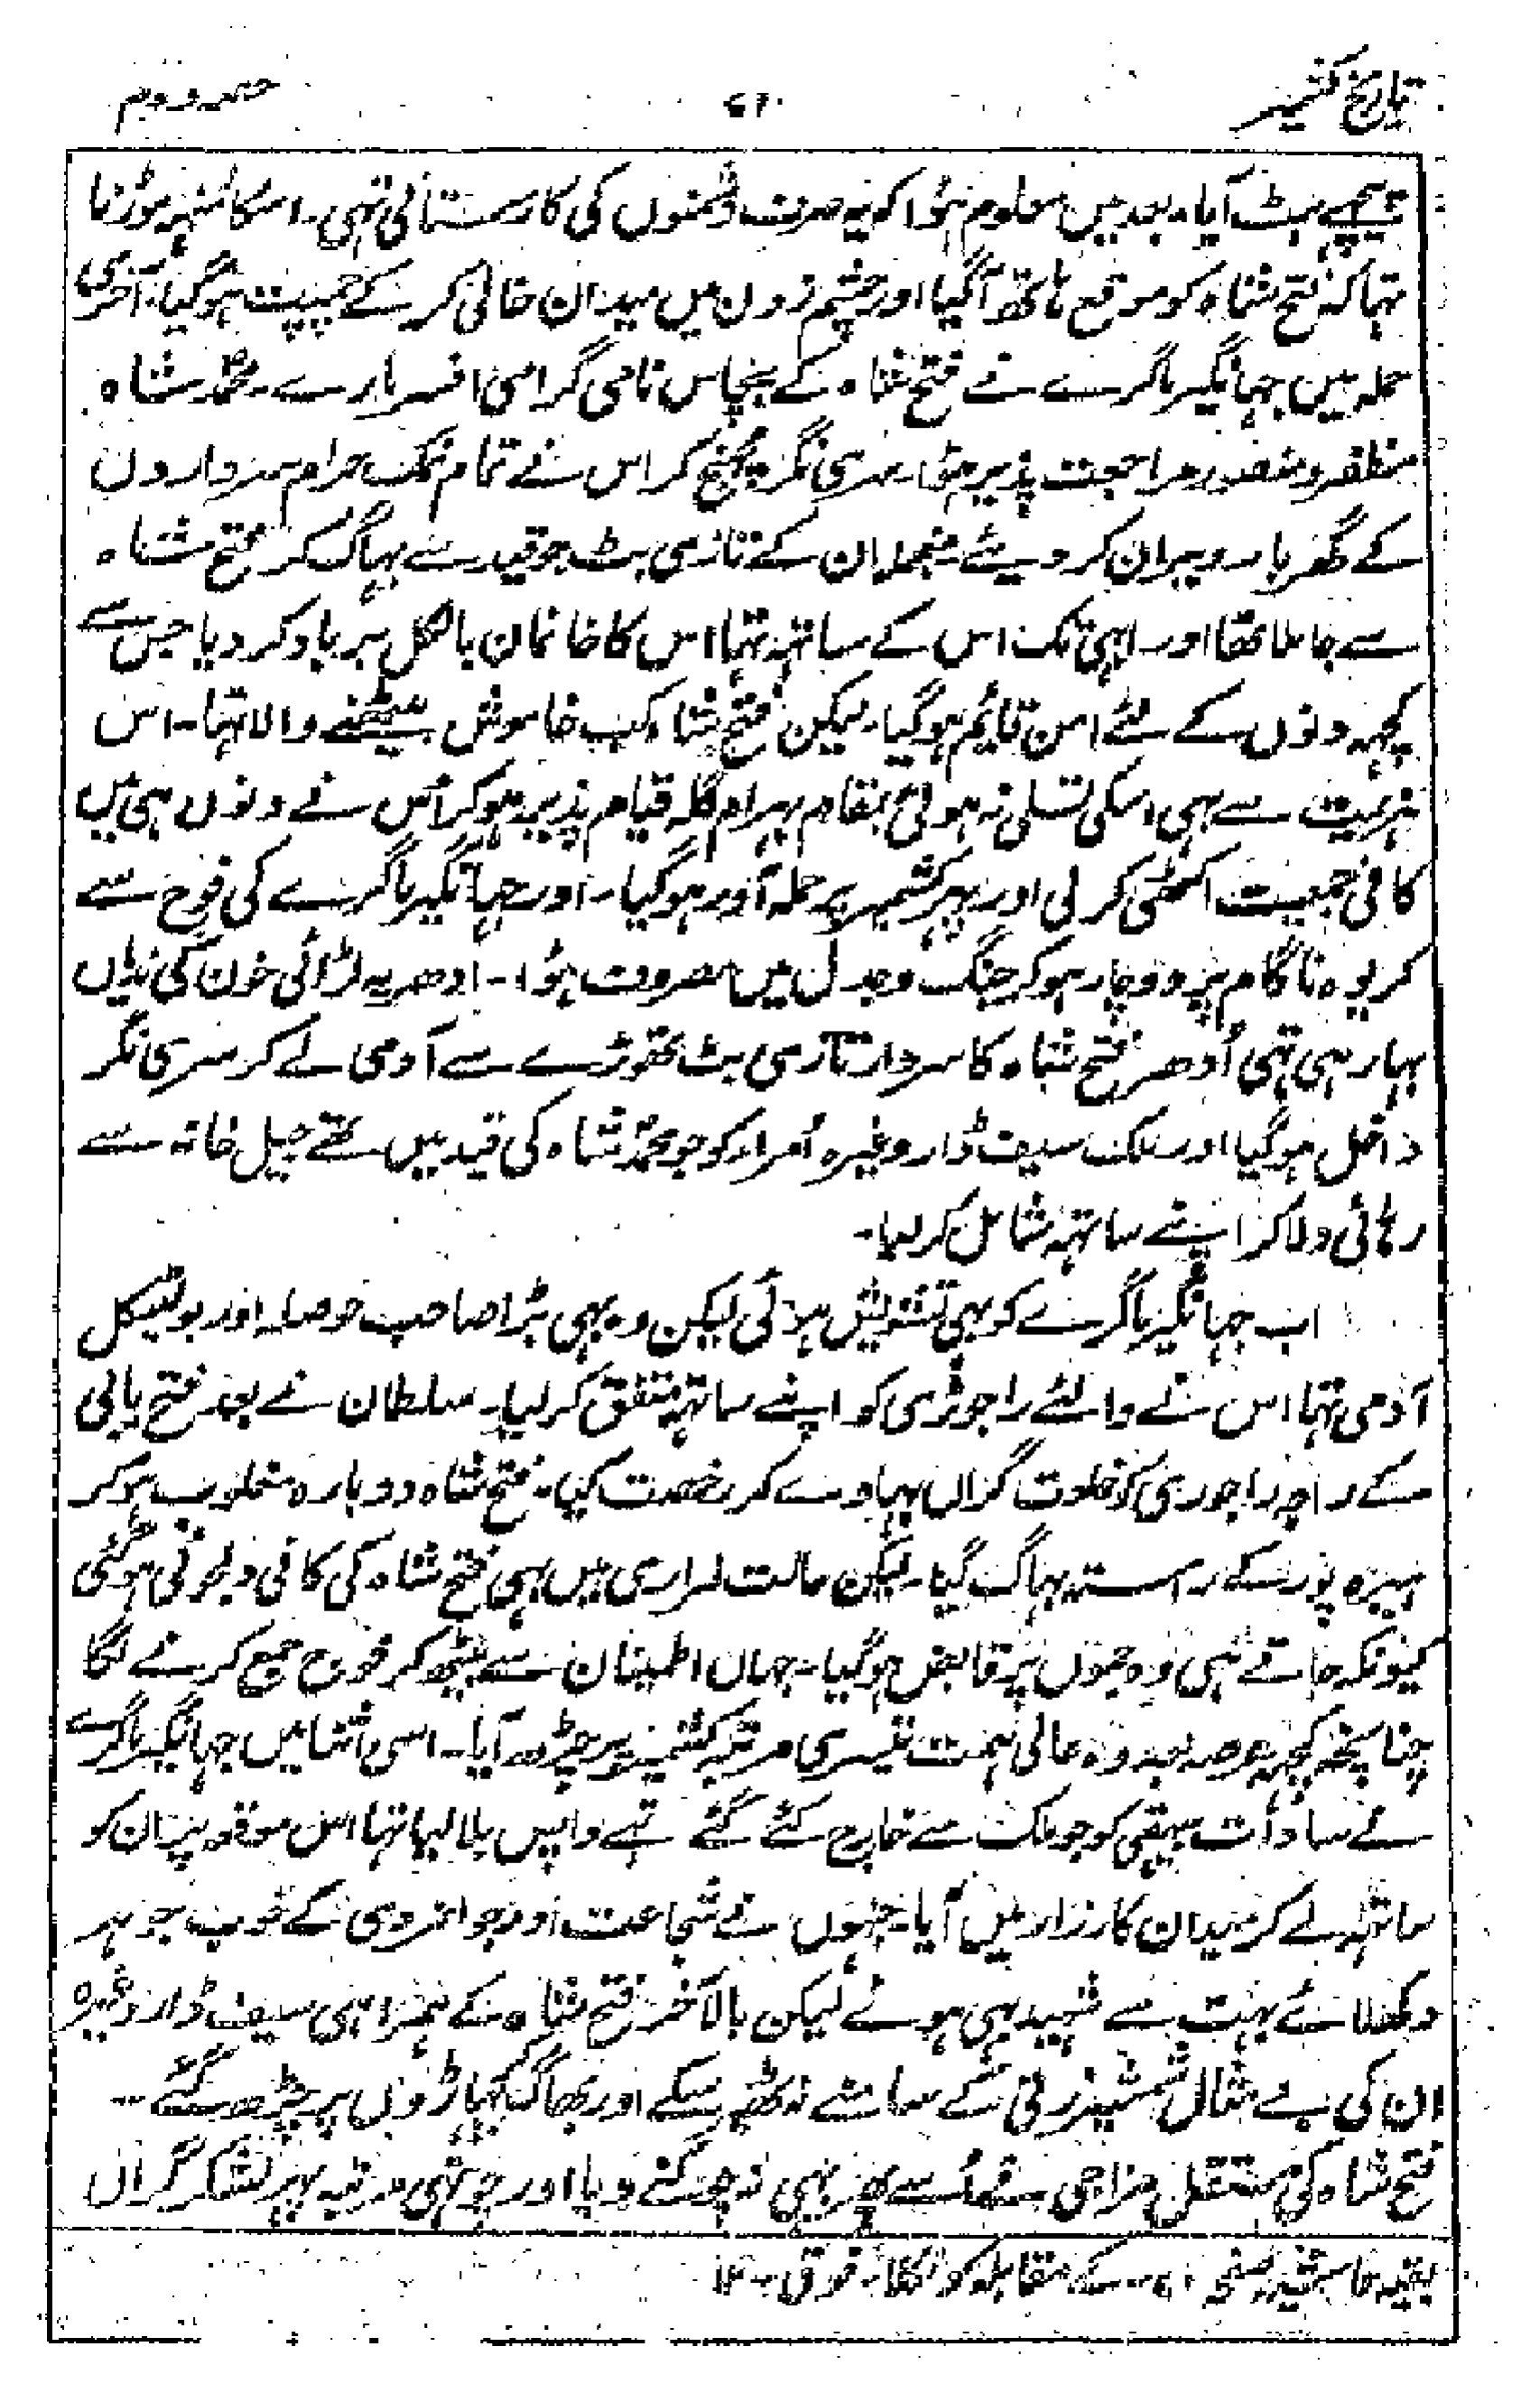 تاریخ کشمیر
حصہ دوم
پیچھے ہٹ آیا۔ بعد میں معلوم ہؤا کہ یہ صرف دشمنوں کی کارستانی تہی۔ اسکا منہہ موڑنا
تہا کہ فتح شاہ کو موقع ہاتھ آگیا اور چشم زدن میں میدان خالی کر کے چمپت ہوگیا۔ آخری
حملہ میں جہانگیر ماگرے نے فتح شاہ کے پچاس نامی گرامی افسر مارے۔ محمد شاہ
مظفر و منصور مراجعت پذیر ہؤا۔ سری نگر پہنچ کر اس نے تمام نمک حرام سرداروں
کے گھر بار ویران کر دیئے منجملہ ان کے تازی بٹ جو قید سے بہاگ کر فتح شاہ
سے جا ملا تھا اور ابہی تک اس کے ساتہہ تہا اس کا خانمان بالکل برباد کر دیا جس سے
کچہہ دنوں کے لئے امن قایم ہوگیا۔ لیکن فتح شاہ کب خاموش بیٹھنے والا تہا۔ اس
ہزیمیت سے بہی اسکی تسلی نہ ہوئی بمقام بہرام گلہ قیام پذیر ہوکر اُس نے دنوں ہی میں
کافی جمعیت اکھٹی کر لی اور پہر کشمیر پر حملہ آور ہوگیا۔ اور جہانگیر ماگرے کی فوج سے
کریوہ ناگام پر دوچار ہوکر جنگ و جدل میں مصروف ہؤا۔ ادھر یہ لڑائی خون کی ندیاں
بہا رہی تہی اُدھر فتح شاہ کا سردار تازی بٹ تھوڑے سے آدمی لے کر سری نگر
داخل ہوگیا اور ملک سیف ڈار وغیرہ اُمراء کو جو محمد شاہ کی قید میں تھے جیل خانہ سے
رہائی دلا کر اپنے ساتہہ شامل کر لیا۔
اب جہانگیر ماگرے کو بہی تشویش ہوئی لیکن وہ بہی بڑا صاحب حوصلہ اور پولٹیکل
آدمی تہا اس نے والئے راجوڑی کو اپنے ساتہہ متفق کر لیا۔ سلطان نے بعد فتح یابی
کے راجہ راجوری کو خلعت گراں بہا دے کر رخصت کیا۔ فتح شاہ دوبارہ مغلوب ہو کر
ہیرہ پور کے رستہ بہاگ گیا۔ لیکن حالت فراری میں بہی فتح شاہ کی کافی دلجوئی ہوگئی
کیونکہ جاتے ہی وہ جموں پر قابض ہوگیا۔ جہاں اطمینان سے بیٹھ کر فوج جمع کرنے لگا
چنانچہ کچہہ عرصہ بعد وہ عالی ہمت تیسری مرتبہ کشمیر پر چڑھ آیا۔ اسی اثنا میں جہانگیر ماگرے
نے سادات بیہقی کو جو ملک سے خارج کئے گئے تہے واپس بلا لیا تہا اس موقعہ پر ان کو
ساتہہ لے کر میدان کارزار میں آیا۔ جنہوں نے شجاعت اور جوانمردی کے خوب جوہر
دکھلائے بہت سے شہید بہی ہوئے لیکن بالآخر فتح شاہ کے ہمراہی سیف ڈار وغیرہ
ان کی بے مثال شمشیر زنی کے سامنے نہ ٹھہر سکے اور بھاگ کر پہاڑوں پر چڑھ گئے۔
فتح شاہ کی مستقل مزاجی نے اُسے پھر بہی نہ چوکنے دیا اور چوتہی مرتبہ پہر لشکر گراں
بقیہ حاشیہ صفحہ کے مقابلہ کو نکلا۔ فوق۔